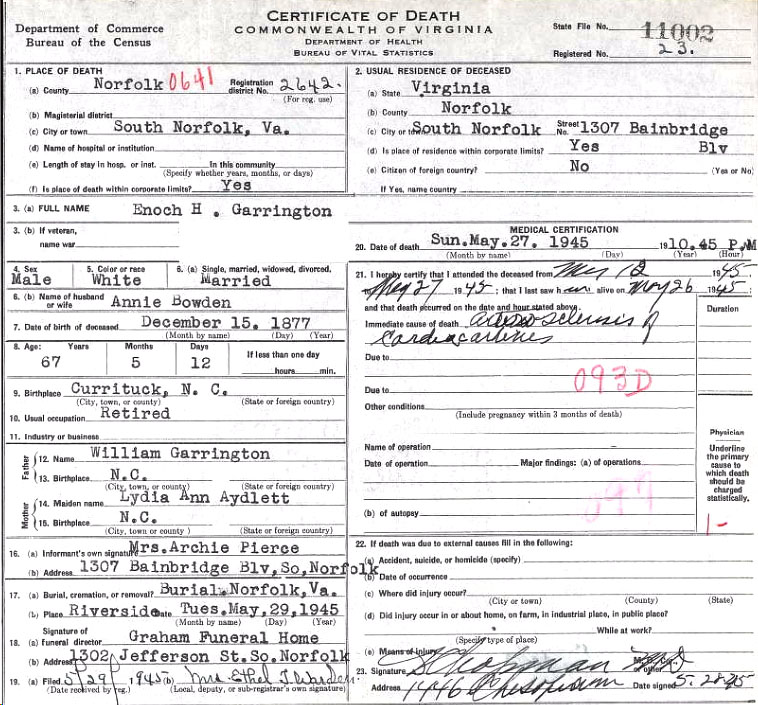 Department of Commerce
Bureau of the Census
CERTIFICATE OF DEATH
COMMONWEALTH OF VIRGINIA
DEPARTMENT OF HEALTH
BUREAU OF VITAL STATISTICS
State File No. 11002
Registered No. 23.
1. PLACE OF DEATH
(a) County Norfolk 0641 Registration district No. 2642.
(For reg. use)
(b) Magisterial district
(c) City or town South Norfolk, Va.
(d) Name of hospital or institution
(e) Length of stay in hosp. or inst. In this community
(Specify whether years, months, or days)
(f) Is place of death within corporate limits? Yes
2. USUAL RESIDENCE OF DECEASED
(a) State Virginia
(b) County Norfolk
(c) City or town South Norfolk Street No. 1307 Bainbridge
(d) Is place of residence within corporate limits? Yes Blv
(e) Citizen of foreign country? No (Yes or No)
If Yes, name country
3. (a) FULL NAME Enoch H. Garrington
3. (b) If veteran,
name war
4. Sex Male
5. Color or race White
6. (a) Single, married, widowed, divorced, Married
6. (b) Name of husband or wife Annie Bowden
7. Date of birth of deceased December 15. 1877
(Month by name) (Day) (Year)
8. Age: Years Months Days If less than one day
67 5 12 hours min.
9. Birthplace Currituck, N. C.
(City, town, or county) (State or foreign country)
10. Usual occupation Retired
11. Industry or business
Father
12. Name William Garrington
13. Birthplace N.C.
(City, town, or county) (State or foreign country)
Mother
14. Maiden name Lydia Ann Aydlett
15. Birthplace N.C.
(City, town, or county) (State or foreign country)
16. (a) Informant's own signature Mrs.Archie Pierce
(b) Address 1307 Bainbridge Blv,So,Norfolk
17. (a) Burial, cremation, or removal? Burial.Norfolk,Va.
(b) Place Riverside Date Tues.May,29,1945
(Month by name) (Day) (Year)
18. Signature of
(a) Funeral director Graham Funeral Home
(b) Address 1302 Jefferson St.So.Norfolk
19. (a) Filed 5/29 1945 (b) Mrs. Ethel T. Warden
(Date received by reg.) (Local, deputy, or sub-registrar's own signature)
MEDICAL CERTIFICATION
20. Date of death Sun.May.27. 1945 19 10.45 P.M
(Month by name) (Day) (Year) (Hour)
21. I hereby certify that I attended the deceased from 12 1945
to May 27 1945; that I last saw him alive on May 26 1945;
and that death occurred on the date and hour stated above.
Duration
Immediate cause of death arteriosclerosis of
Cardiac arteries
Due to
Due to 093D
Other conditions
(Include pregnancy within 3 months of death)
Name of operation
Date of operation Major findings: (a) of operations
097
(b) of autopsy
Physician
Underline
the primary
cause to
which death
should be
charged
statistically.
1-
22. If death was due to external causes fill in the following:
(a) Accident, suicide, or homicide (specify)
(b) Date of occurrence
(c) Where did injury occur?
(City or town) (County) (State)
(d) Did injury occur in or about home, on farm, in industrial place, in public place?
While at work?
(Specify type of place)
(e) Means of injury
23. Signature Chapman M.D. or other
Address 1446 Date signed 5.28.45